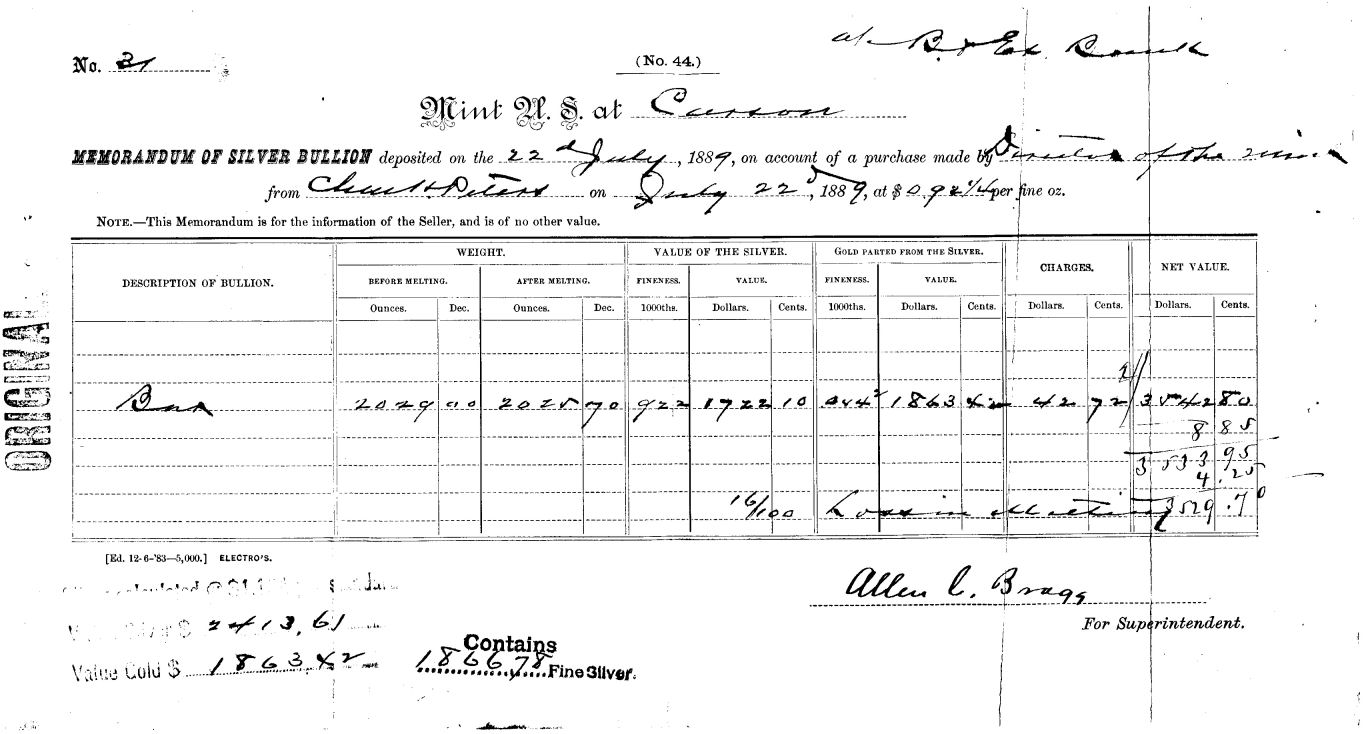 at B. & Ex. Bank
No. 31
(No. 44.)
Mint U. S. at Carson
MEMORANDUM OF SILVER BULLION deposited on the 22d July, 1889, on account of a purchase made by Director of the Mint
from Chas. H. Peters on July 22d, 1889, at $0.92 1/4 per fine oz.
NOTE.—This Memorandum is for the information of the Seller, and is of no other value.
ORIGINAL
DESCRIPTION OF BULLION. WEIGHT. VALUE OF THE SILVER. GOLD PARTED FROM THE SILVER. CHARGES. NET VALUE.
BEFORE MELTING. AFTER MELTING. FINENESS. VALUE. FINENESS. VALUE.
Ounces. Dec. Ounces. Dec. 1000ths. Dollars. Cents. 1000ths. Dollars. Cents. Dollars. Cents. Dollars. Cents.
Bar 2029 00 2025 70 922 1722 10 044 2 1863 42 42 72 3542 80
8 85
3533 95
4.25
16/100 Loss in Melting 3529.70
[Ed. 12-6-'83—5,000.] ELECTRO'S.
Allen C. Bragg
For Superintendent.
2413,61
Contains
Value Gold $ 1863 42 1866 78 Fine Silver.